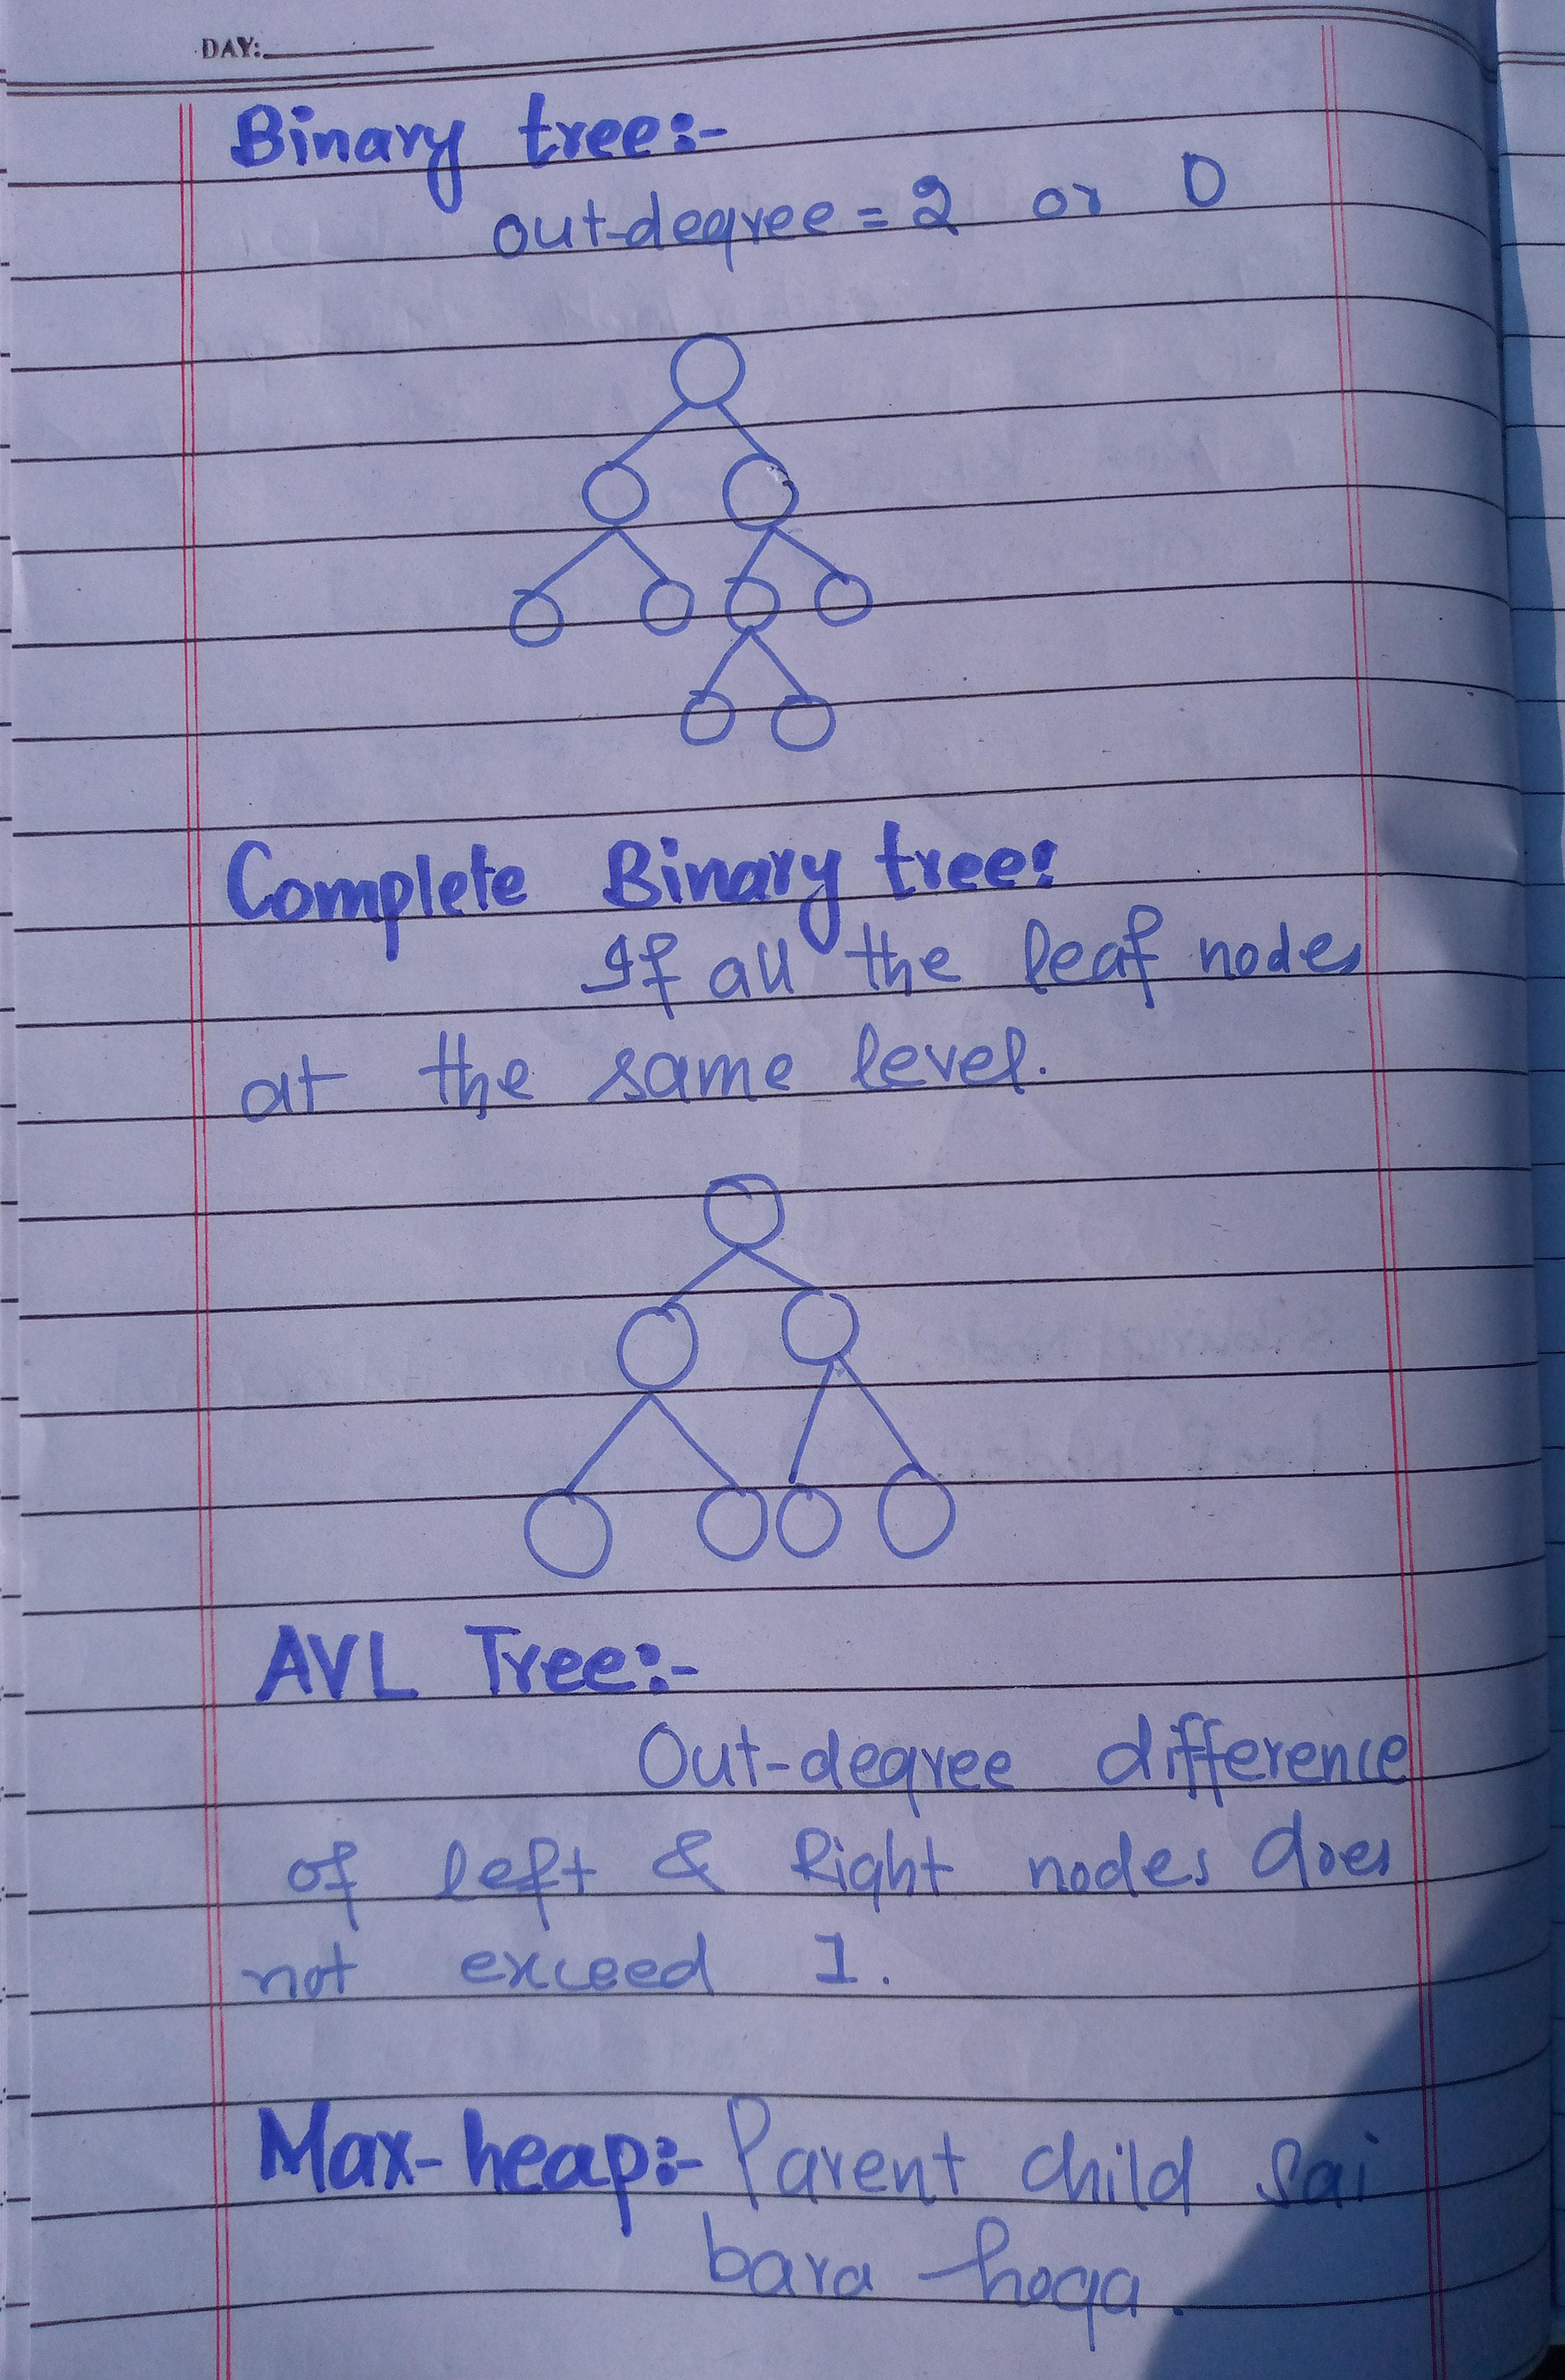 DAY:
Binary tree:-
out-degree = 2 or 0
Complete Binary tree:
If all the leaf nodes
at the same level.
AVL Tree:-
Out-degree difference
of left & Right nodes does
not exceed 1.
Max-heap:- Parent child sai
bara hoga.